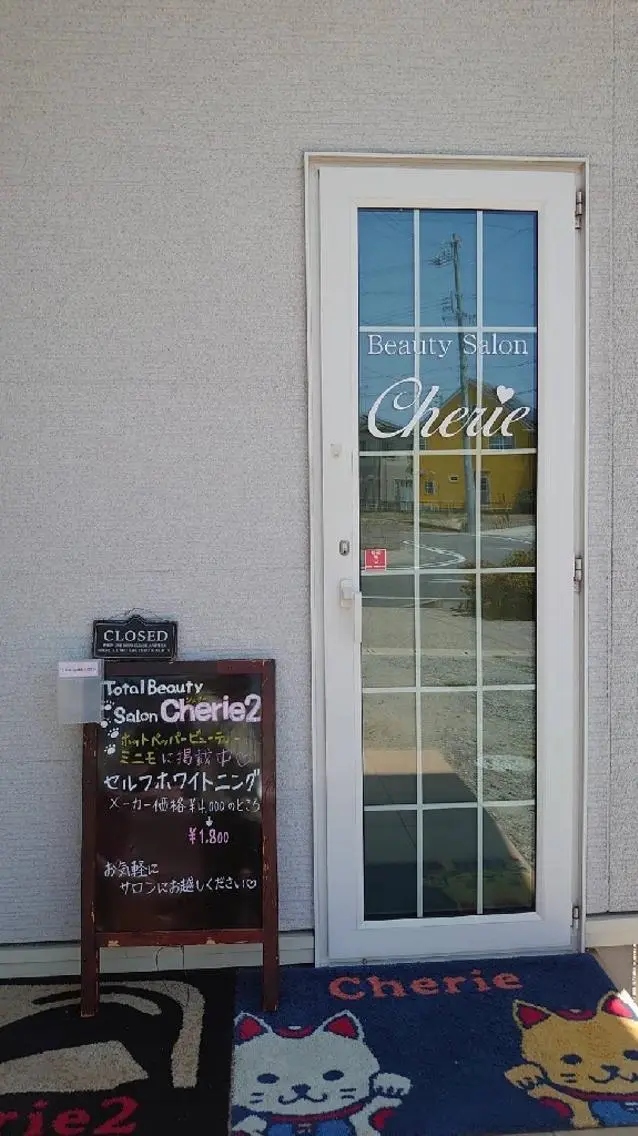 Beauty Salon
Cherie
CLOSED
Total Beauty
Salon Cherie2
ホットペッパービューティー
ミニモに掲載中♡
セルフホワイトニング
メーカー価格¥4,000のところ
↓
¥1,800
お気軽に
サロンにお越しください♡
Cherie
rie2